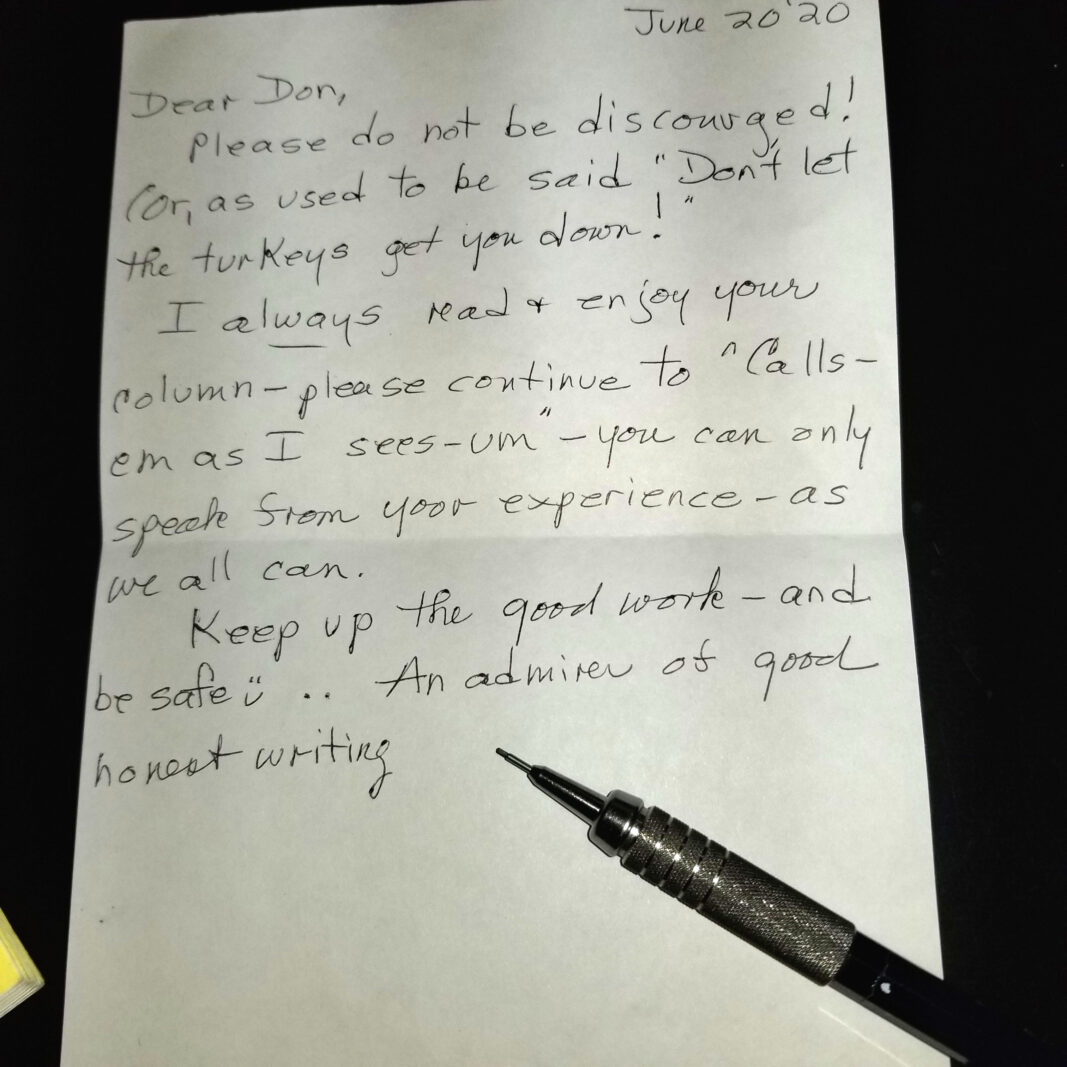 June 20 '20
Dear Don,
Please do not be discourged!
(or, as used to be said "Don't let
the turkeys get you down!"
I always read & enjoy your
column - please continue to "Calls-
em as I sees-um" - you can only
speak from your experience - as
we all can.
Keep up the good work - and
be safe ü .. An admirer of good
honest writing